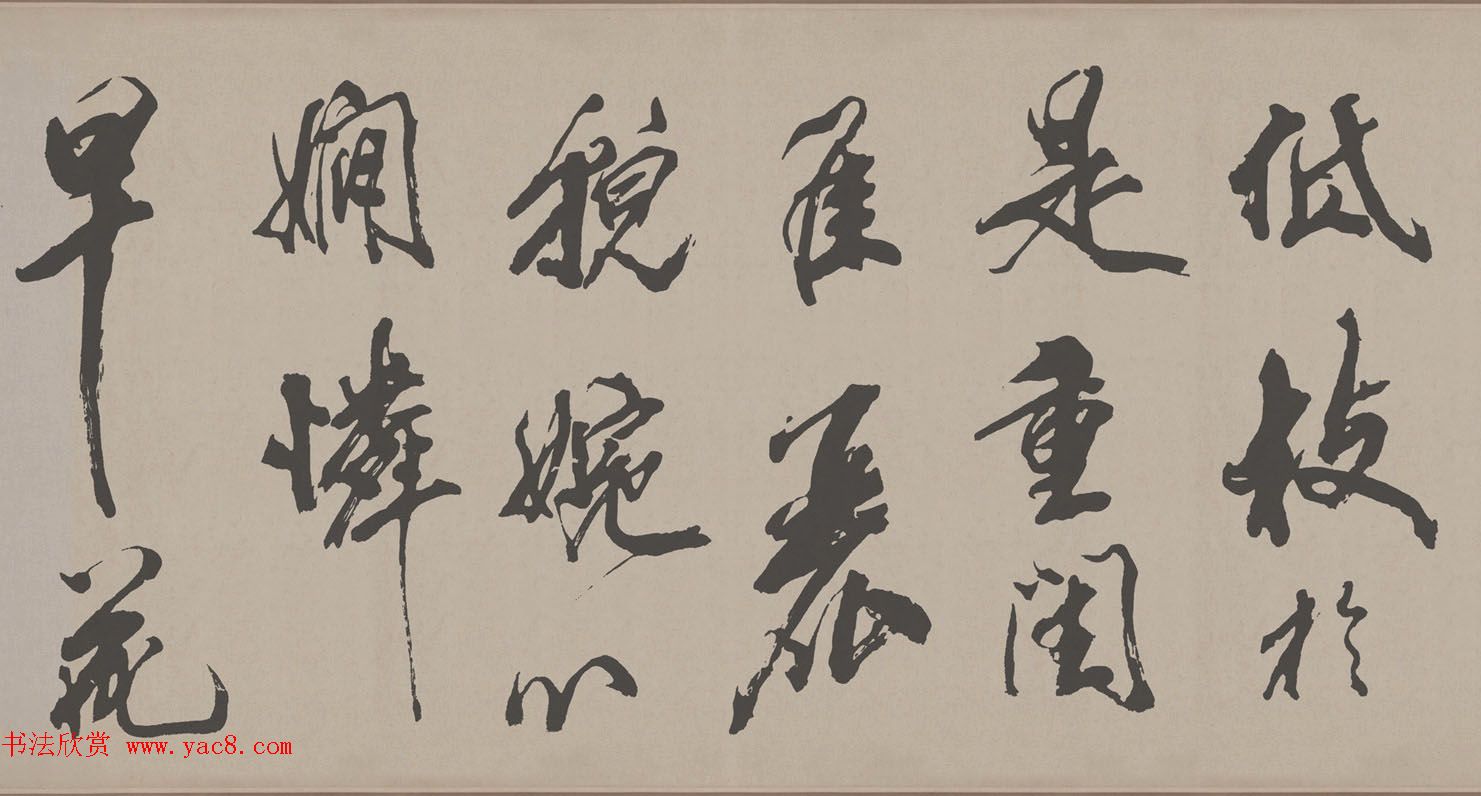 低枝於
是重閨
佳麗
貌婉心
嫺憐
早花
书法欣赏 www.yac8.com